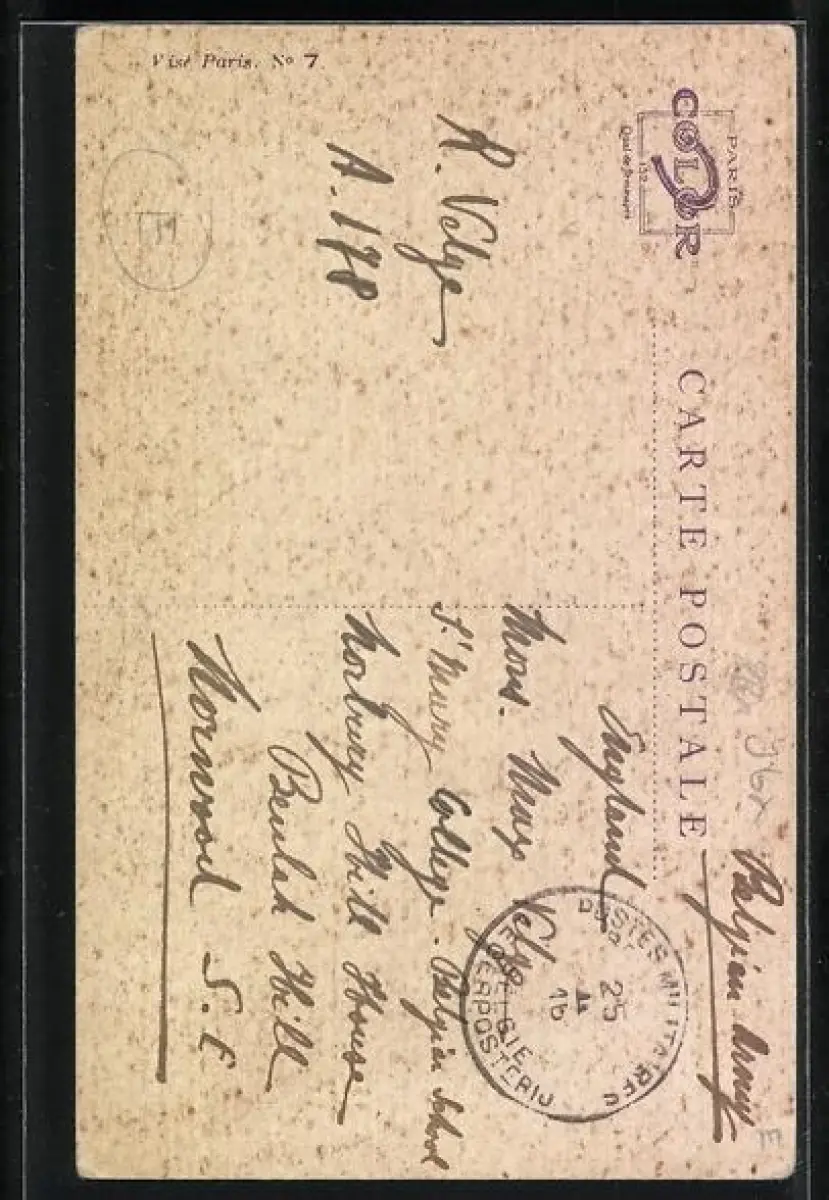 CARTE POSTALE
COLOR
PARIS
152
Visé Paris. No 7
Belgian Army
R. Velge
A. 178
England
Mons. Max Velge
St Mary College. Belgian School
Norbury Hill House
Beulah Hill
Norwood S.E
POSTES MILITAIRES
BELGIE
LEGERPOSTERIJ
25
II
16
E